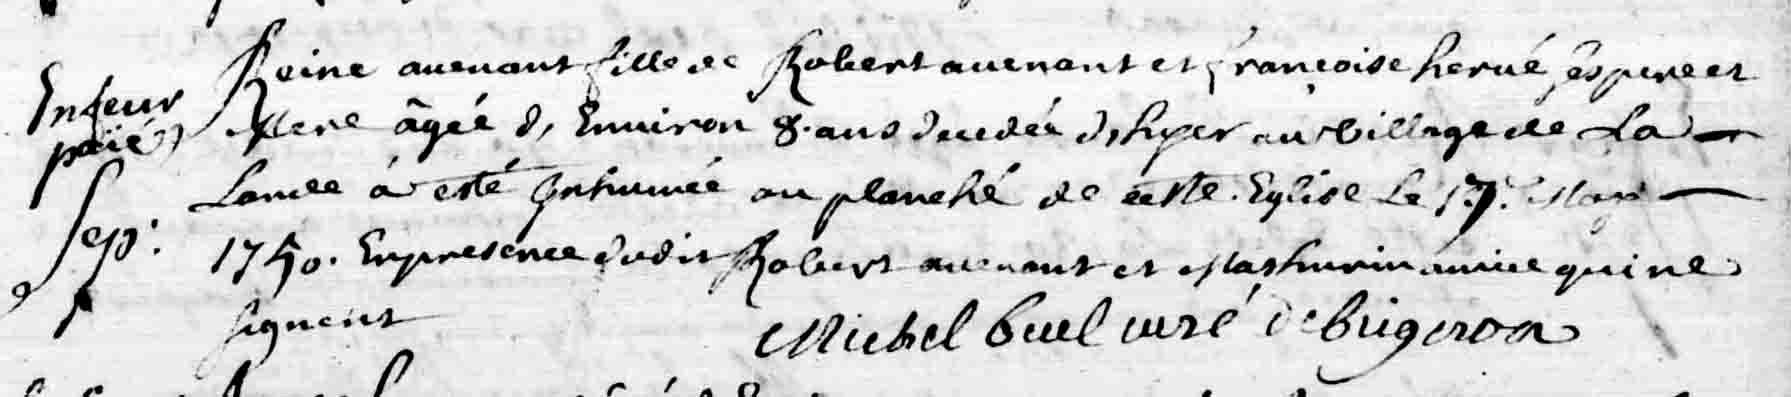 Reine auenant fille de Robert auenant et françoise herué ses pere et
Enfeur
paÿé
Mere âgée d'Enuiron 8. ans decedée d'hyer au Village de La
Lande á esté Jnhumée au planché de cette Eglise Le 17.e May
Sep:
1750. En presence dudit Robert auenant et Mathurin qui ne
signent
Michel curé de brigeron